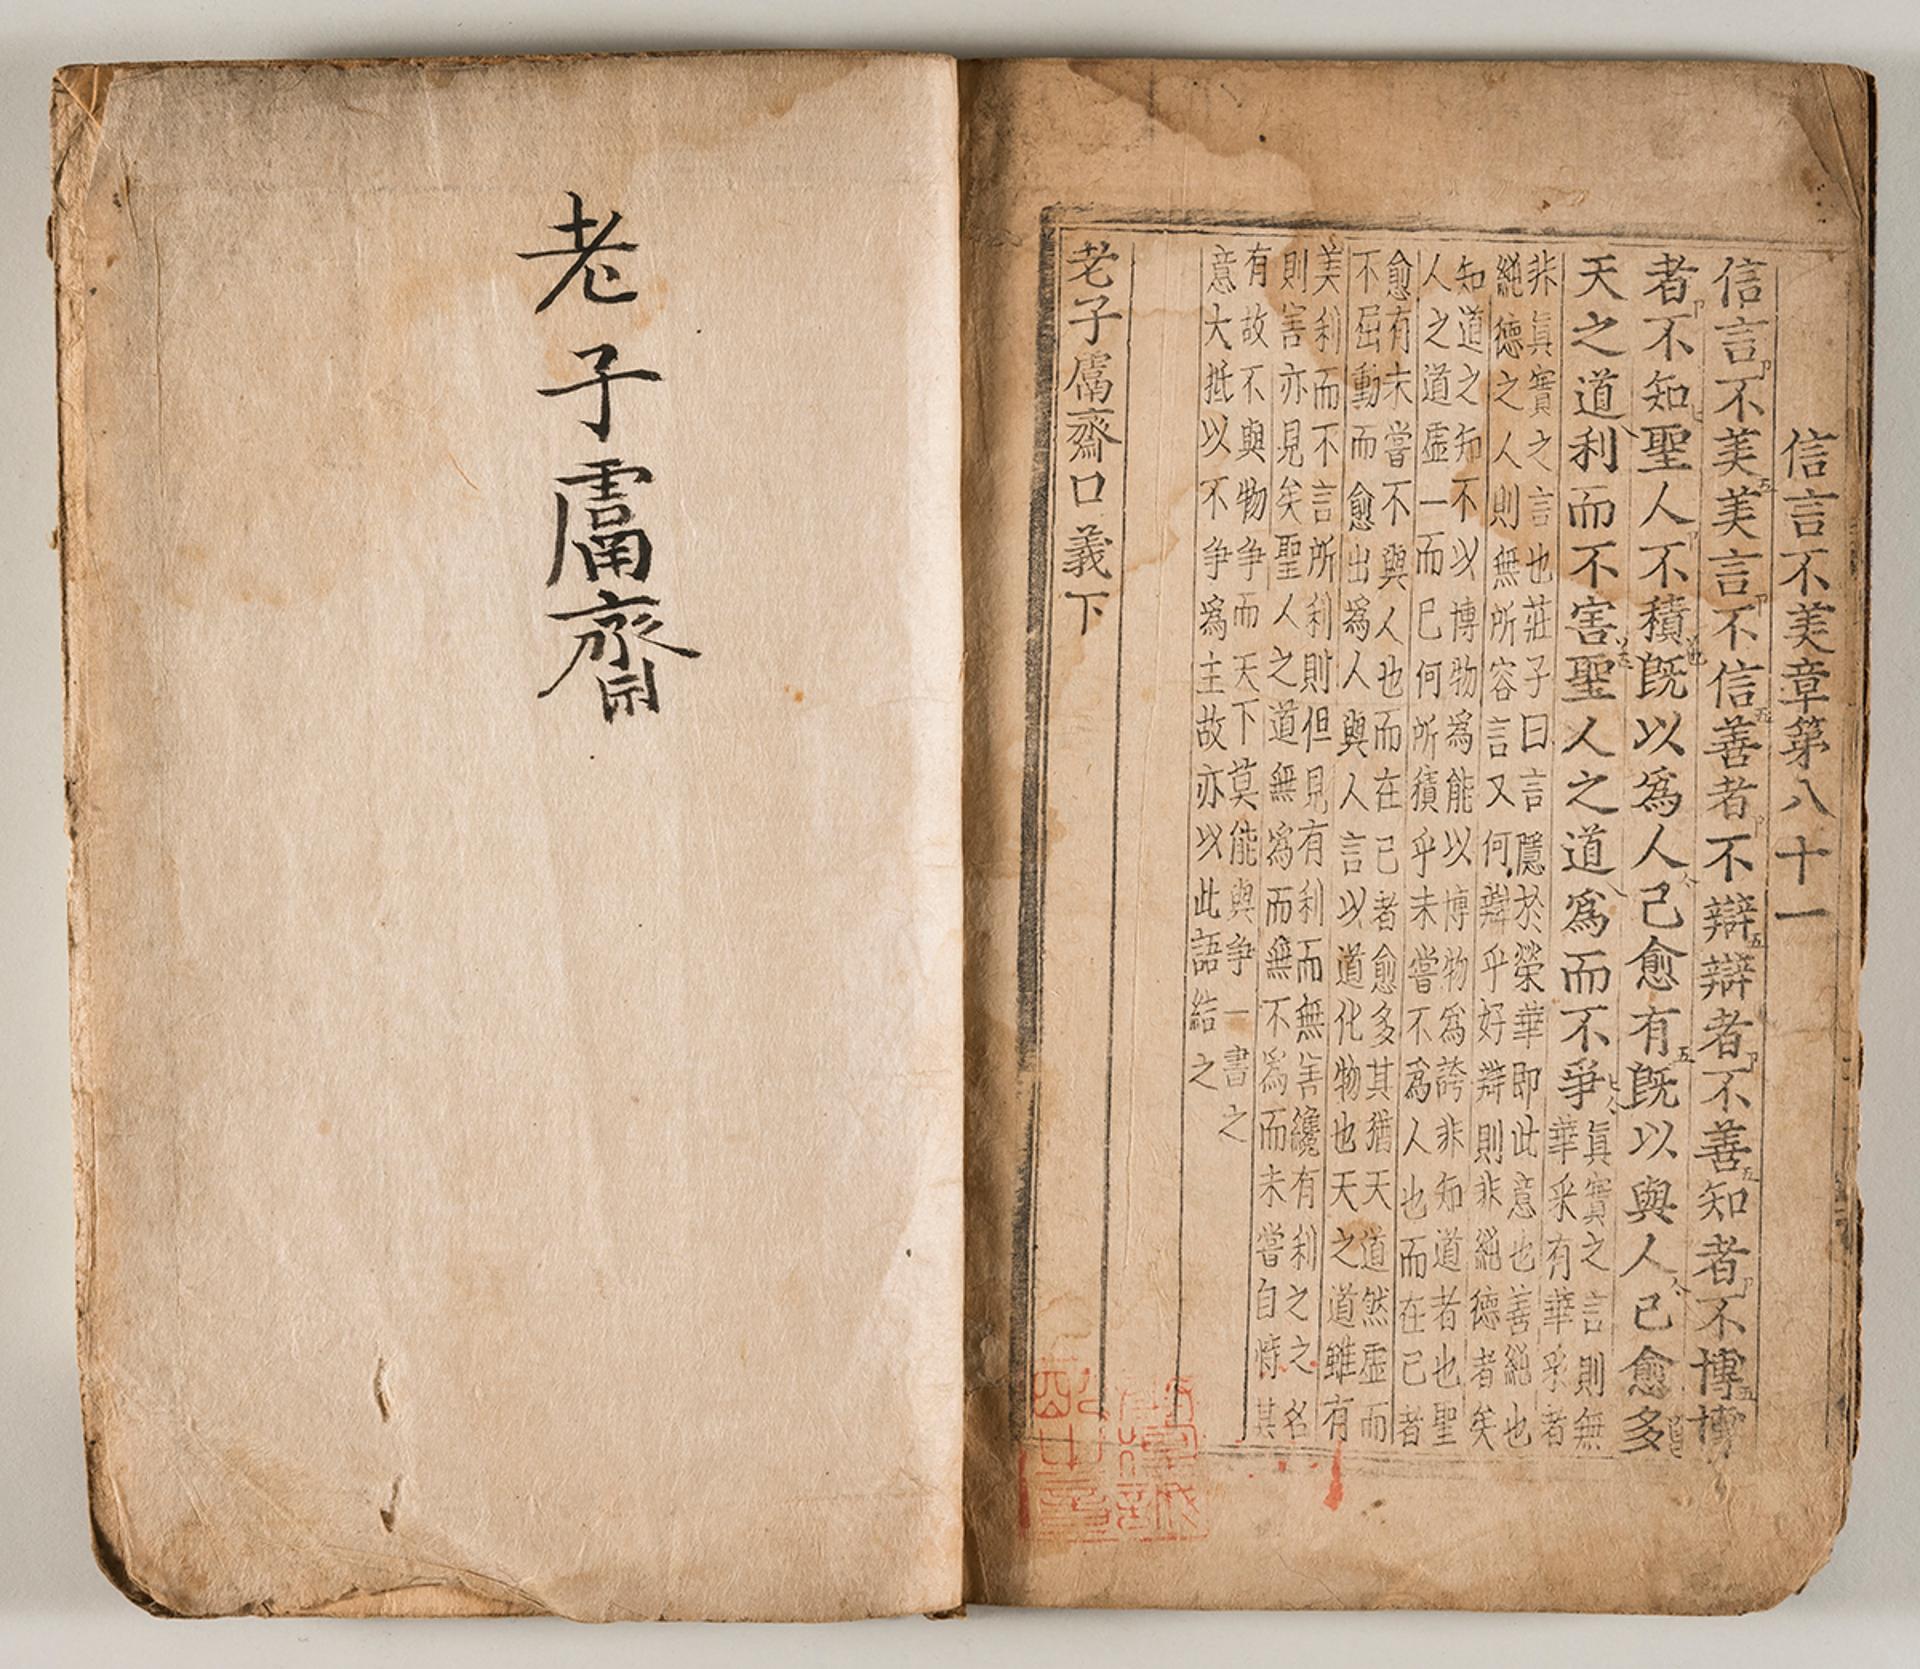 信言不美章第八十一
信言不美美言不信善者不辯辯者不善知者不博博
者不知聖人不積旣以爲人己愈有旣以與人己愈多
天之道利而不害聖人之道爲而不爭
眞實之言則無
華采有華采者
非眞實之言也莊子曰言隱於榮華即此意也善純也
純德之人則無所容言又何辯乎好辯則非純德者矣
知道之知不以博物爲能以博物爲誇非知道者也聖
人之道虛一而已何所積乎未嘗不爲人也而在己者
愈有未嘗不與人也而在己者愈多其猶天道然虛而
不屈動而愈出爲人與人言以道化物也天之道雖有
美利而不言所利則但見有利而無害纔有利之之名
則害亦見矣聖人之道無爲而無不爲而未嘗自恃其
有故不與物争而天下莫能與争一書之
意大抵以不争爲主故亦以此語結之
老子鬳齋口義下
老子鬳齋